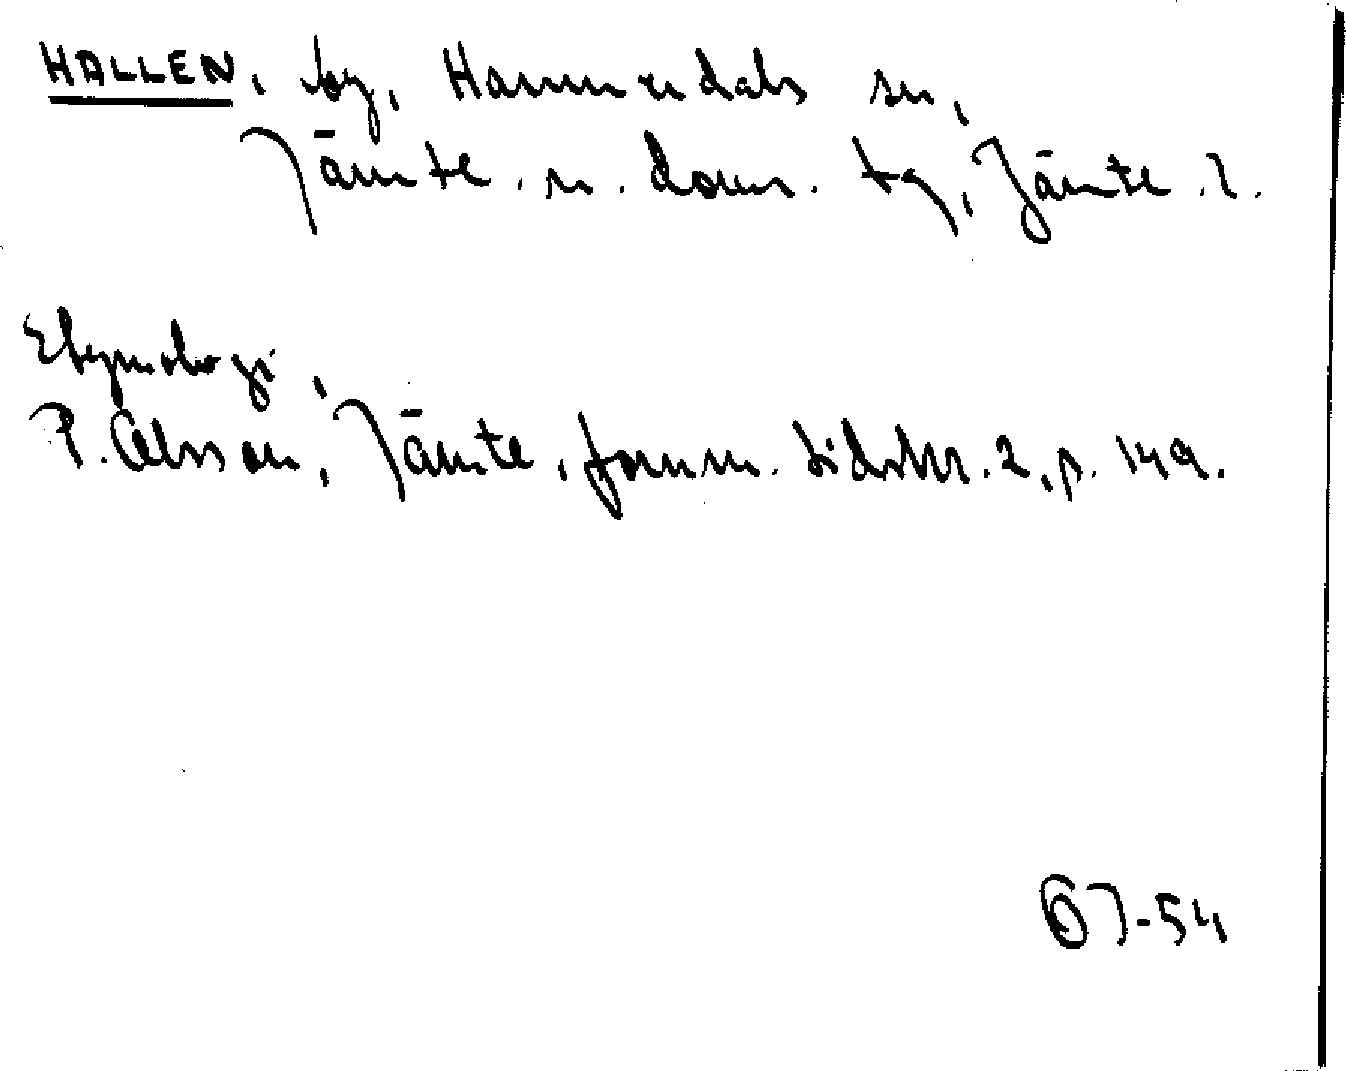 HALLEN, by, Hammerdals sn,
Jämtl. n. doms. tg, Jämtl. l.
Etymologi,
P. Olsson, Jämtl. fornm. tidskr. 2, p. 149.
67-54